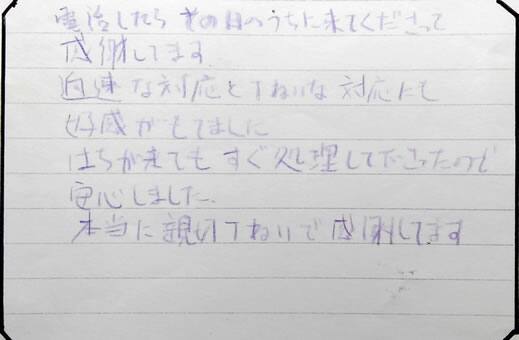 電話したら その日のうちに来てくださって
感謝してます
迅速な対応とていねいな対応にも
好感がもてました
はちが来ても すぐ処理して下さったので
安心しました。
本当に親切ていねいで感謝してます